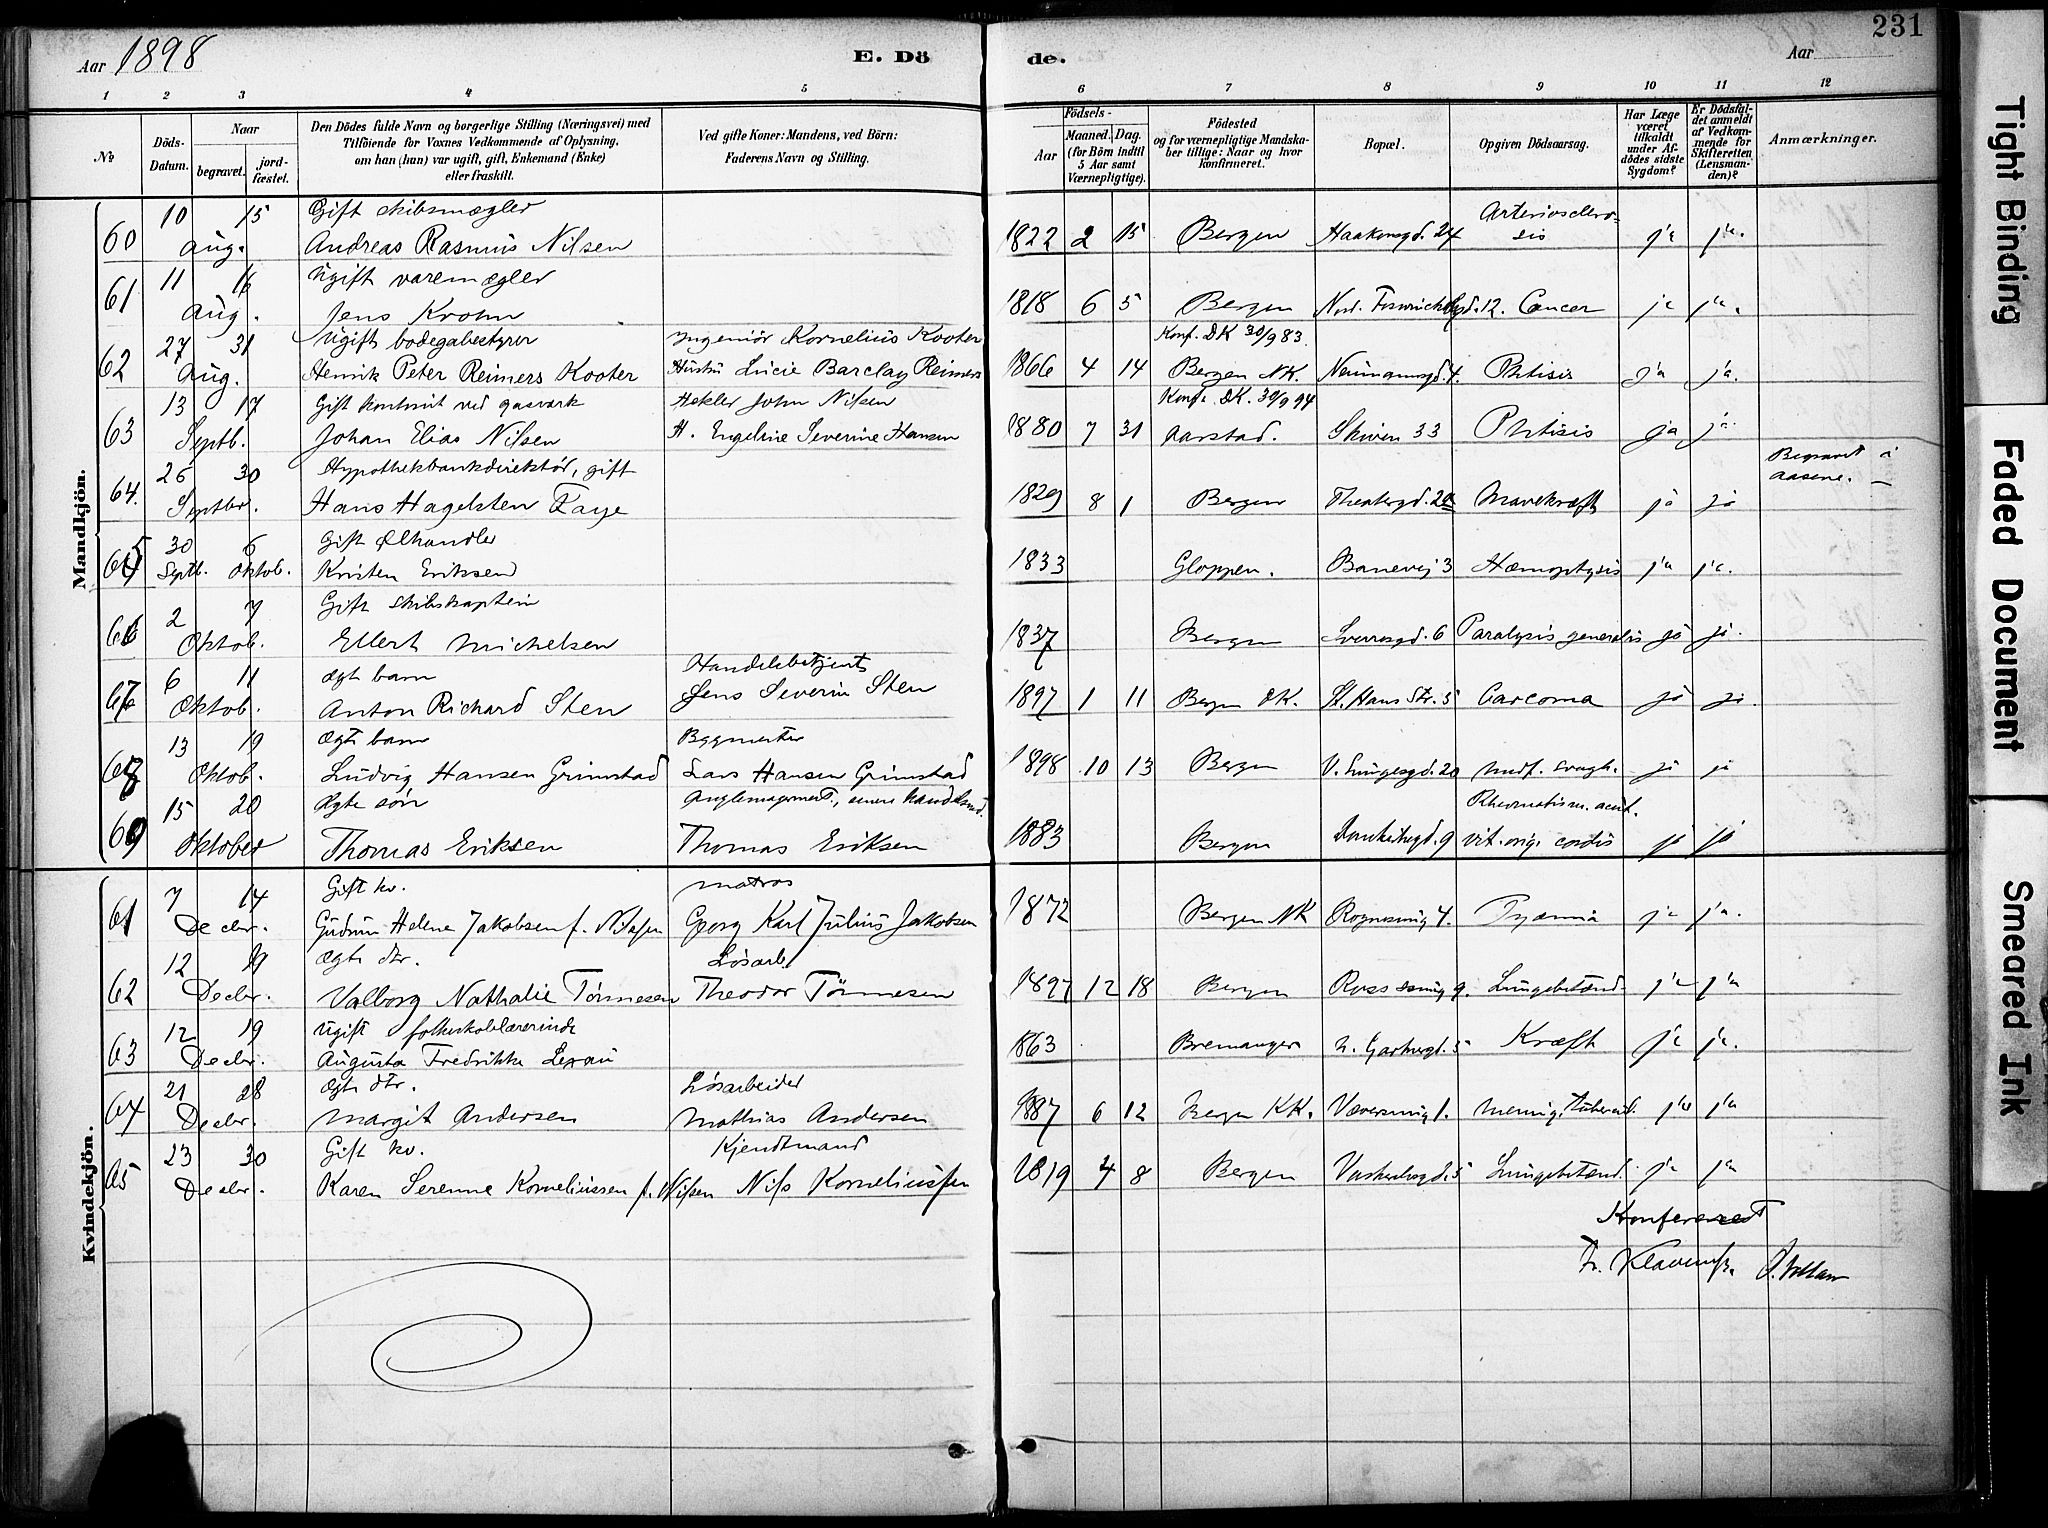 231
Aar 1898
E. Dö
de.
Aar
1 2 3 4 5 6 7 8 9 10 11 12
No
Döds-Datum.
Naar
begravet.
jord-fæstet.
Den Dödes fulde Navn og borgerlige Stilling (Næringsvei) med
Tilföiende for Voxnes Vedkommende af Oplysning,
om han (hun) var ugift, gift, Enkemand (Enke)
eller fraskilt.
Ved gifte Koner: Mandens, ved Börn:
Faderens Navn og Stilling.
Födsels-
Aar
Maaned. Dag.
(for Börn indtil
5 Aar samt
Værnepligtige).
Födested
og for værnepligtige Mandska-
ber tillige: Naar og hvor
konfirmeret.
Bopæl.
Opgiven Dödsaarsag.
Har Læge
været
tilkaldt
under Af-
dödes sidste
Sygdom?
Er Dödsfal-
det anmeldt
af Vedkom-
mende for
Skifteretten
(Lensman-
den)?
Anmærkninger.
Mandkjön.
10 15 Gift skibsmægler Arteriosclero-
60 Aug. Andreas Rasmus Nilsen 1822 2 15 Bergen Haakonsgd. 24 sis ja ja.
11 16 Ugift varemægler
61 Aug. Jens Krohn 1818 6 5 Bergen 12. Cancer ja ja.
27 31 Ugift bodegabestyrer Ingeniör Kornelius Kooter Konf. DK 30/9 83.
62 Aug. Henrik Peter Reimers Kooter Hustru Lucie Barclay Reimers 1866 4 14 Bergen NK. Neumannsgd. 4. Phtisis ja ja.
13 17 Gift kontorist ved gasverk Hekler John Nilsen Konf. DK. 30/9 94
63 Septb. Johan Elias Nilsen H. Engeline Severine Hansen 1880 7 31 Aarstad. Skiven 33 Phtisis ja ja.
26 30 Hypothekbankdirektör, gift Begravet i
64. Septbr. Hans Hagelsten Faye 1829 8 1 Bergen Theatergd. 20 Mavekræft ja ja Aasene.
30 6 Gift Ølhandler
65 Septb. Oktob. Kristen Eriksen 1833 Gloppen. Banevej 3 Hæmoptysis ja ja.
2 7 Gift skibskaptein
66 Oktob. Ellert Michelsen 1837 Bergen Sverresgd. 6 Paralysis generalis ja ja.
6 11 Ægte barn Handelsbetjent
67 Oktob. Anton Richard Sten Jens Severin Sten 1897 1 11 Bergen DK. St. Hans Str. 5 Carcoma ja ja.
13 19 Ægte barn Bygmester
68 Oktob. Ludvig Hansen Grimstad Lars Hansen Grimstad 1898 10 13 Bergen V. Lungegd. 20 medf. svagh. ja ja
15 20 Ægte sön Rheumatism. acut.
69 Oktober Thomas Eriksen Thomas Eriksen 1883 Bergen 9 vit. org. cordis ja ja
Kvindekjön.
7 14 Gift kv. Matros
61 Decbr. Gudrun Helene Jakobsen f. Nilssen Georg Karl Julius Jakobsen 1872 Bergen NK 4. Pyæmia ja ja.
12 19 Ægte dtr. Lösarb.
62 Decbr. Valborg Nathalie Tönnesen Theodor Tönnesen 1897 12 18 Bergen 9. Lungebetænd. ja ja
12 19 Ugift folkeskolelærerinde
63 Decbr. Augusta Fredrikke Lexau 1863 Bremanger 5 Kræft ja ja.
21 28 Ægte dtr. Lösarbeider
64 Decbr. Margit Andersen Mathias Andersen 1887 6 12 Bergen KK. 1. Mening. tubercul. ja ja
23 30 Gift kv. Kjendtmand
65 Decbr. Karen Serenne Korneliussen f. Nilsen Nils Korneliussen 1819 4 8 Bergen 5 Lungebetænd. ja ja
Konfereret
Tight Binding
Faded Document
Smeared Ink